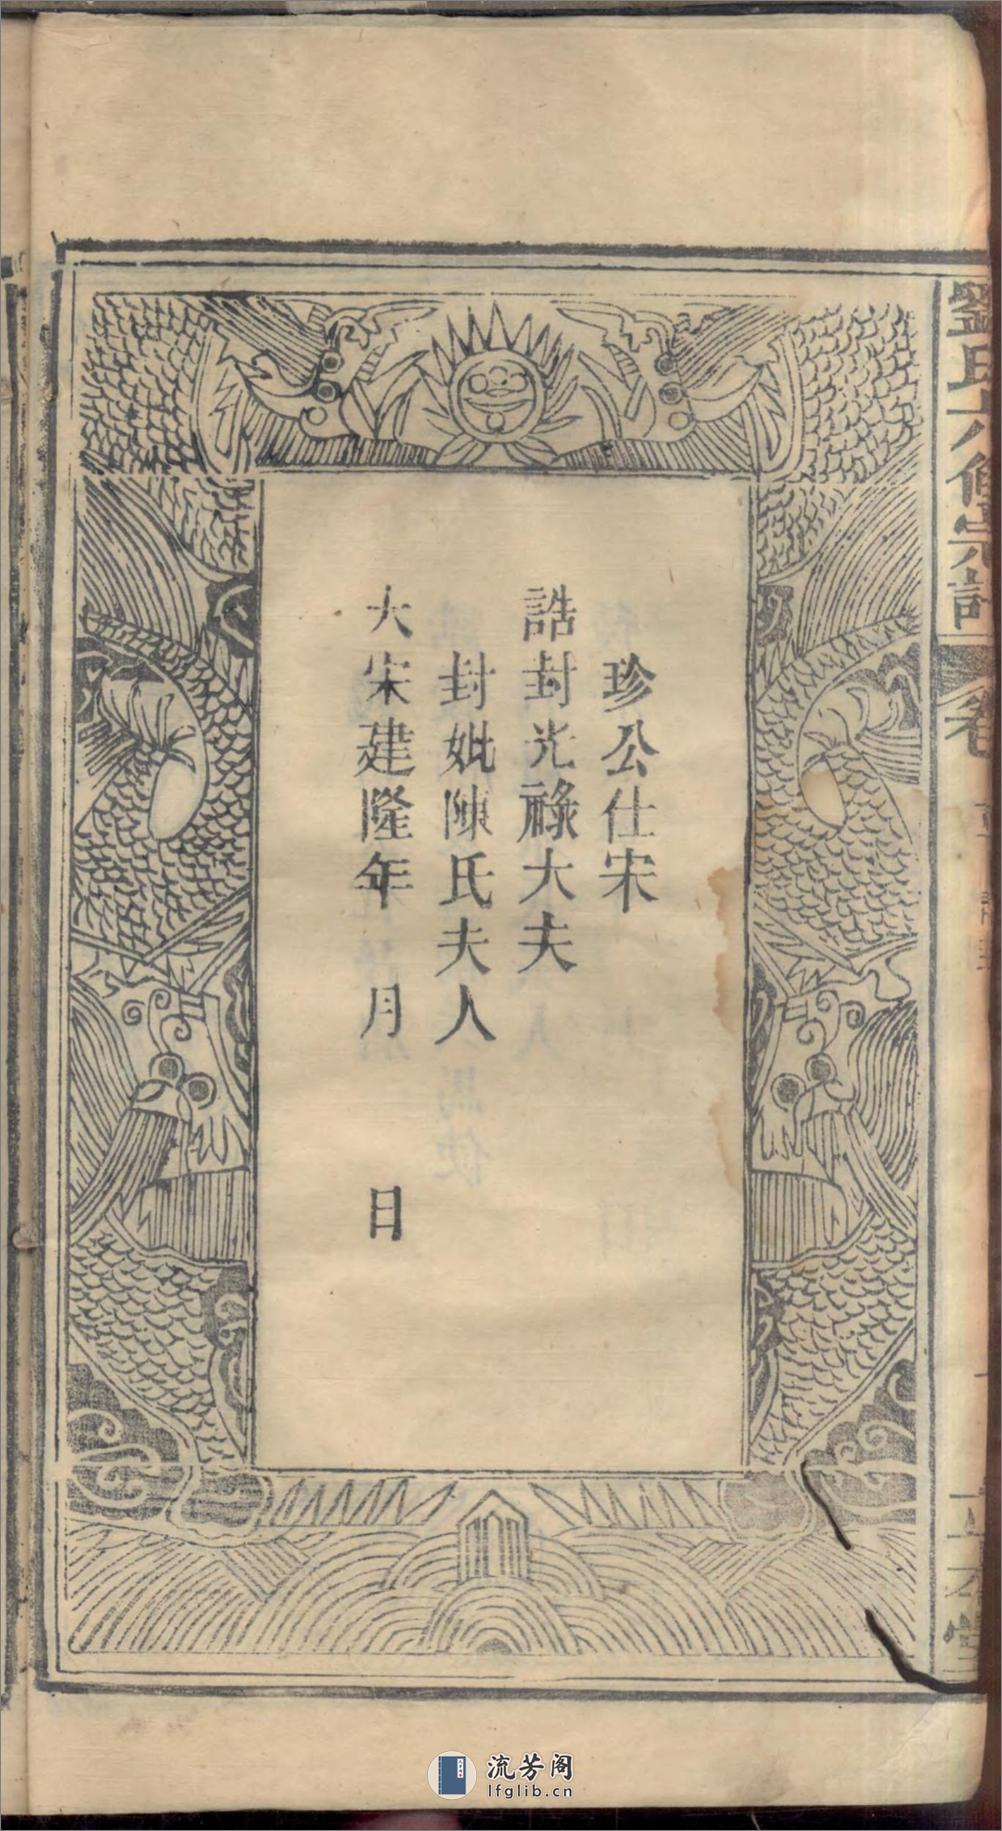 劉氏六修宗譜
卷
珍公仕宋
誥封光祿大夫
封妣陳氏夫人
大宋建隆年 月 日
流芳阁
lfglib.cn